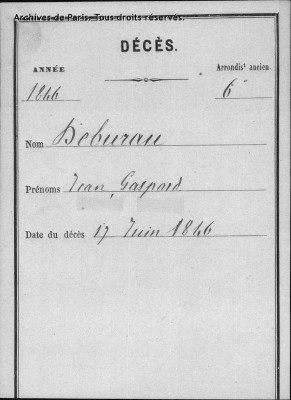 Archives de Paris. Tous droits réservés.
DÉCÈS.
ANNÉE
Arrondist ancien.
1846
6e
Nom Deburau
Prénoms Jean Gaspard
Date du décès 17 Juin 1846